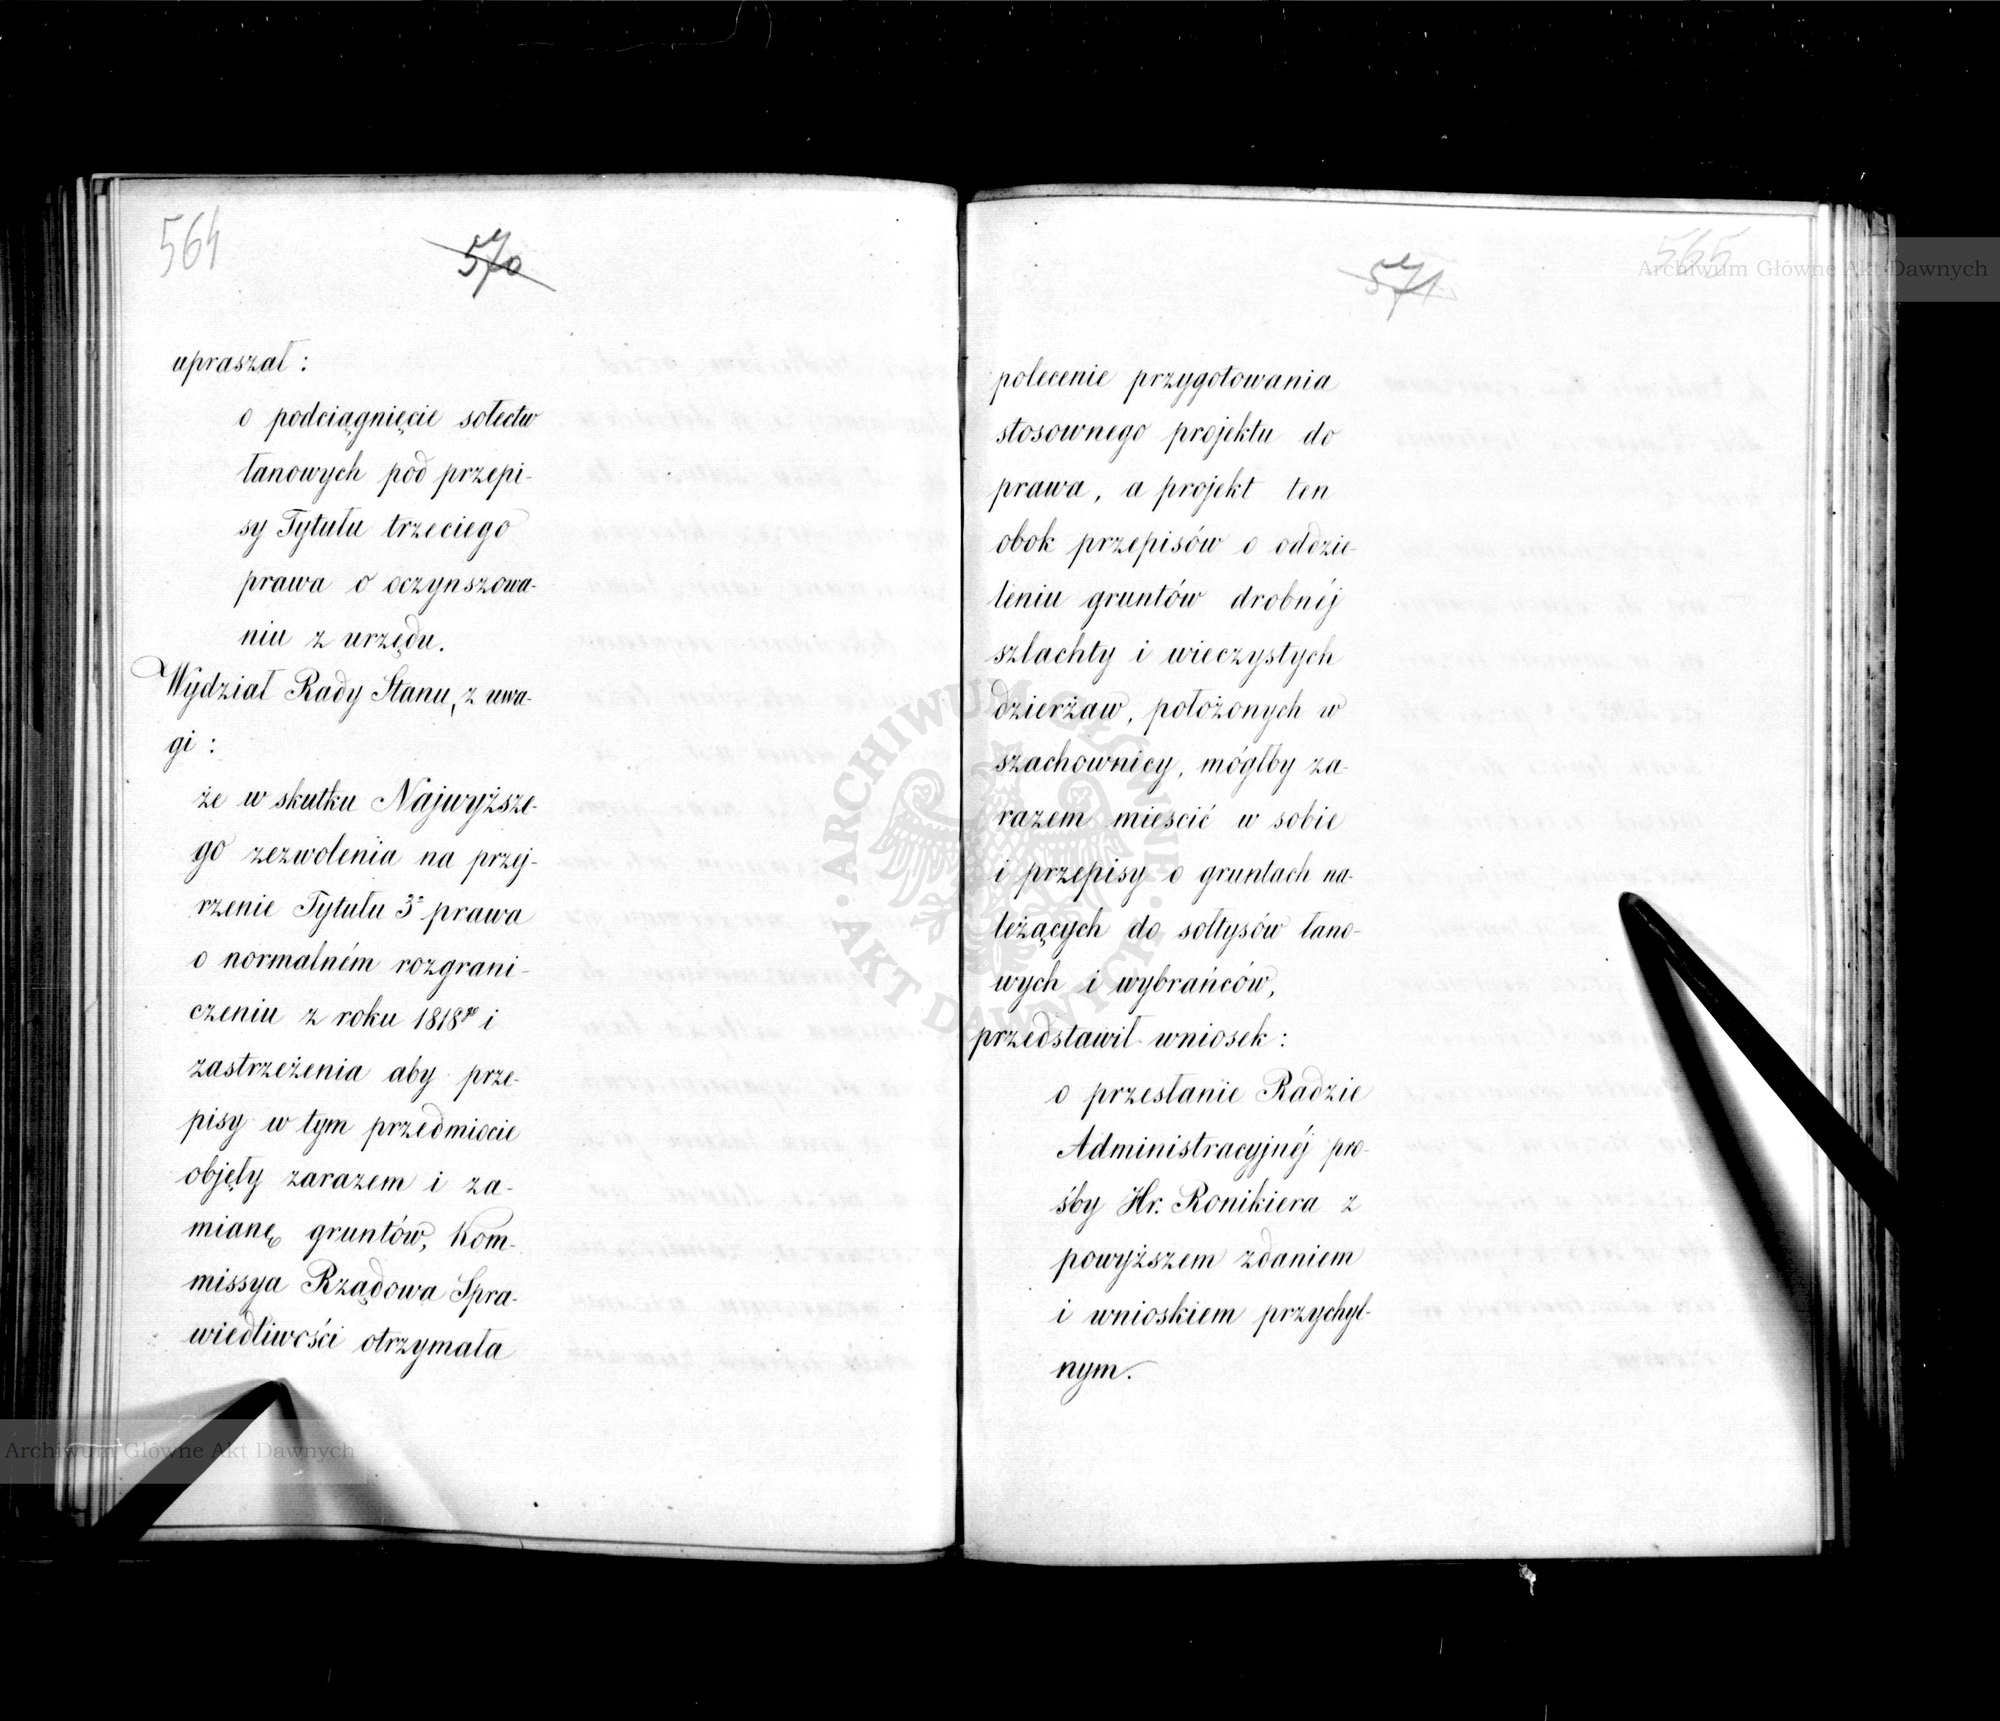 564
570
upraszał:
o podciągnięcie sołectw
łanowych pod przepi-
sy Tytułu trzeciego
prawa o oczynszowa-
niu z urzędu.
Wydział Rady Stanu, z uwa-
gi:
że w skutku Najwyższe-
go zezwolenia na przej-
rzenie Tytułu 3º prawa
o normalném rozgrani-
czeniu z roku 1818go i
zastrzeżenia aby prze-
pisy w tym przedmiocie
objęły zarazem i za-
mianę gruntów, Kom-
missya Rządowa Spra-
wiedliwości otrzymała
565
571
polecenie przygotowania
stosownego projektu do
prawa, a projekt ten
obok przepisów o oddzie-
leniu gruntów drobnéj
szlachty i wieczystych
dzierżaw, położonych w
szachownicy, mógłby za-
razem mieścić w sobie
i przepisy o gruntach na-
leżących do sołtysów łano-
wych i wybrańców,
przedstawił wniosek:
o przesłanie Radzie
Administracyjnéj pro-
śby Hr. Ronikiera z
powyższem zdaniem
i wnioskiem przychyl-
nym.
Archiwum Główne Akt Dawnych
ARCHIWUM GŁÓWNE · AKT DAWNYCH ·
Archiwum Główne Akt Dawnych